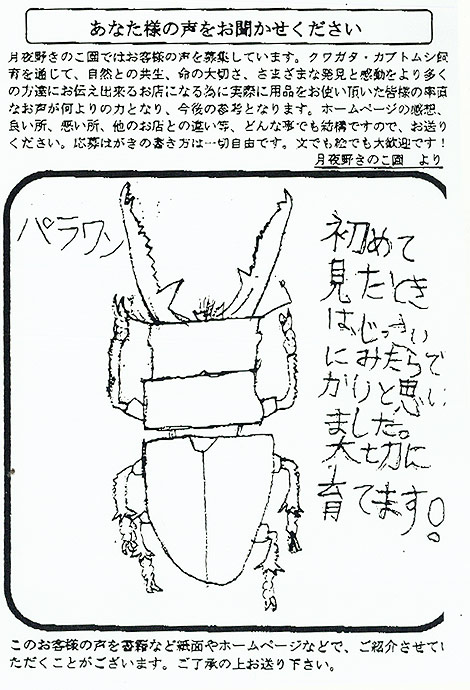 あなた様の声をお聞かせください
月夜野きのこ園ではお客様の声を募集しています。クワガタ・カブトムシ飼
育を通じて、自然との共生、命の大切さ、さまざまな発見と感動をより多く
の方達にお伝え出来るお店になる為に実際に用品をお使い頂いた皆様の率直
なお声が何よりの力となり、今後の参考となります。ホームページの感想、
良い所、悪い所、他のお店との違い等、どんな事でも結構ですので、お送り
ください。応募はがきの書き方は一切自由です。文でも絵でも大歓迎です!
月夜野きのこ園 より
パラワン
初めて
見たとき
は、じっさい
にみたらで
と思い
ました。
大切に
育てます。
このお客様の声を書籍など紙面やホームページなどで、ご紹介させてい
ただくことがございます。ご了承の上お送り下さい。